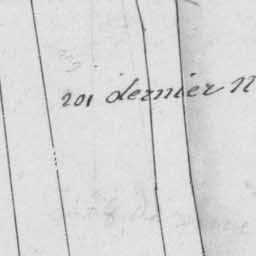 201 dernier n